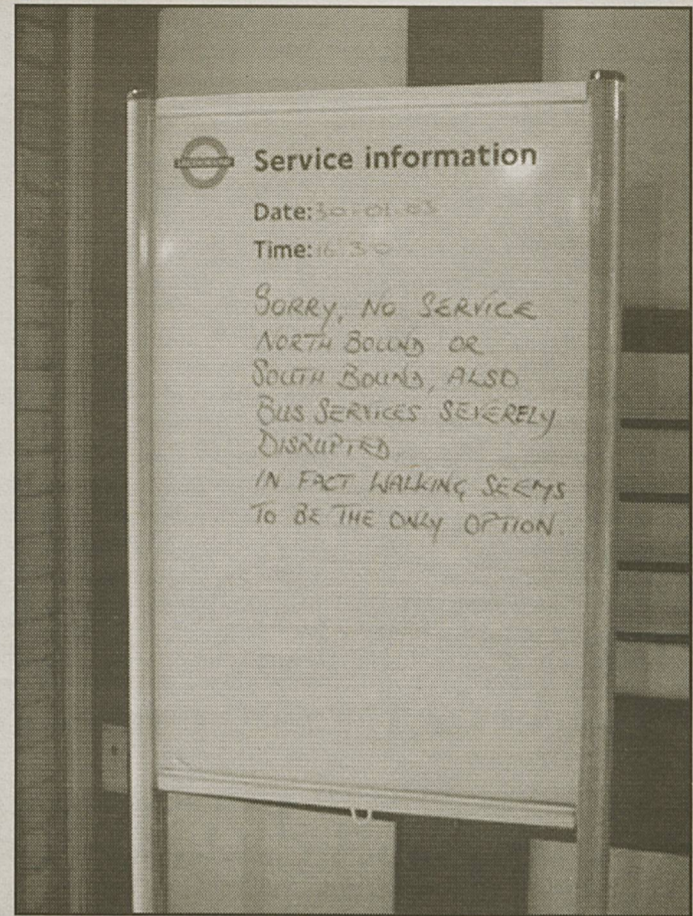 UNDERGROUND
Service information
Date: 30-01-03
Time: 16:30
SORRY, NO SERVICE
NORTH BOUND OR
SOUTH BOUND, ALSO
BUS SERVICES SEVERELY
DISRUPTED.
IN FACT WALKING SEEMS
TO BE THE ONLY OPTION.